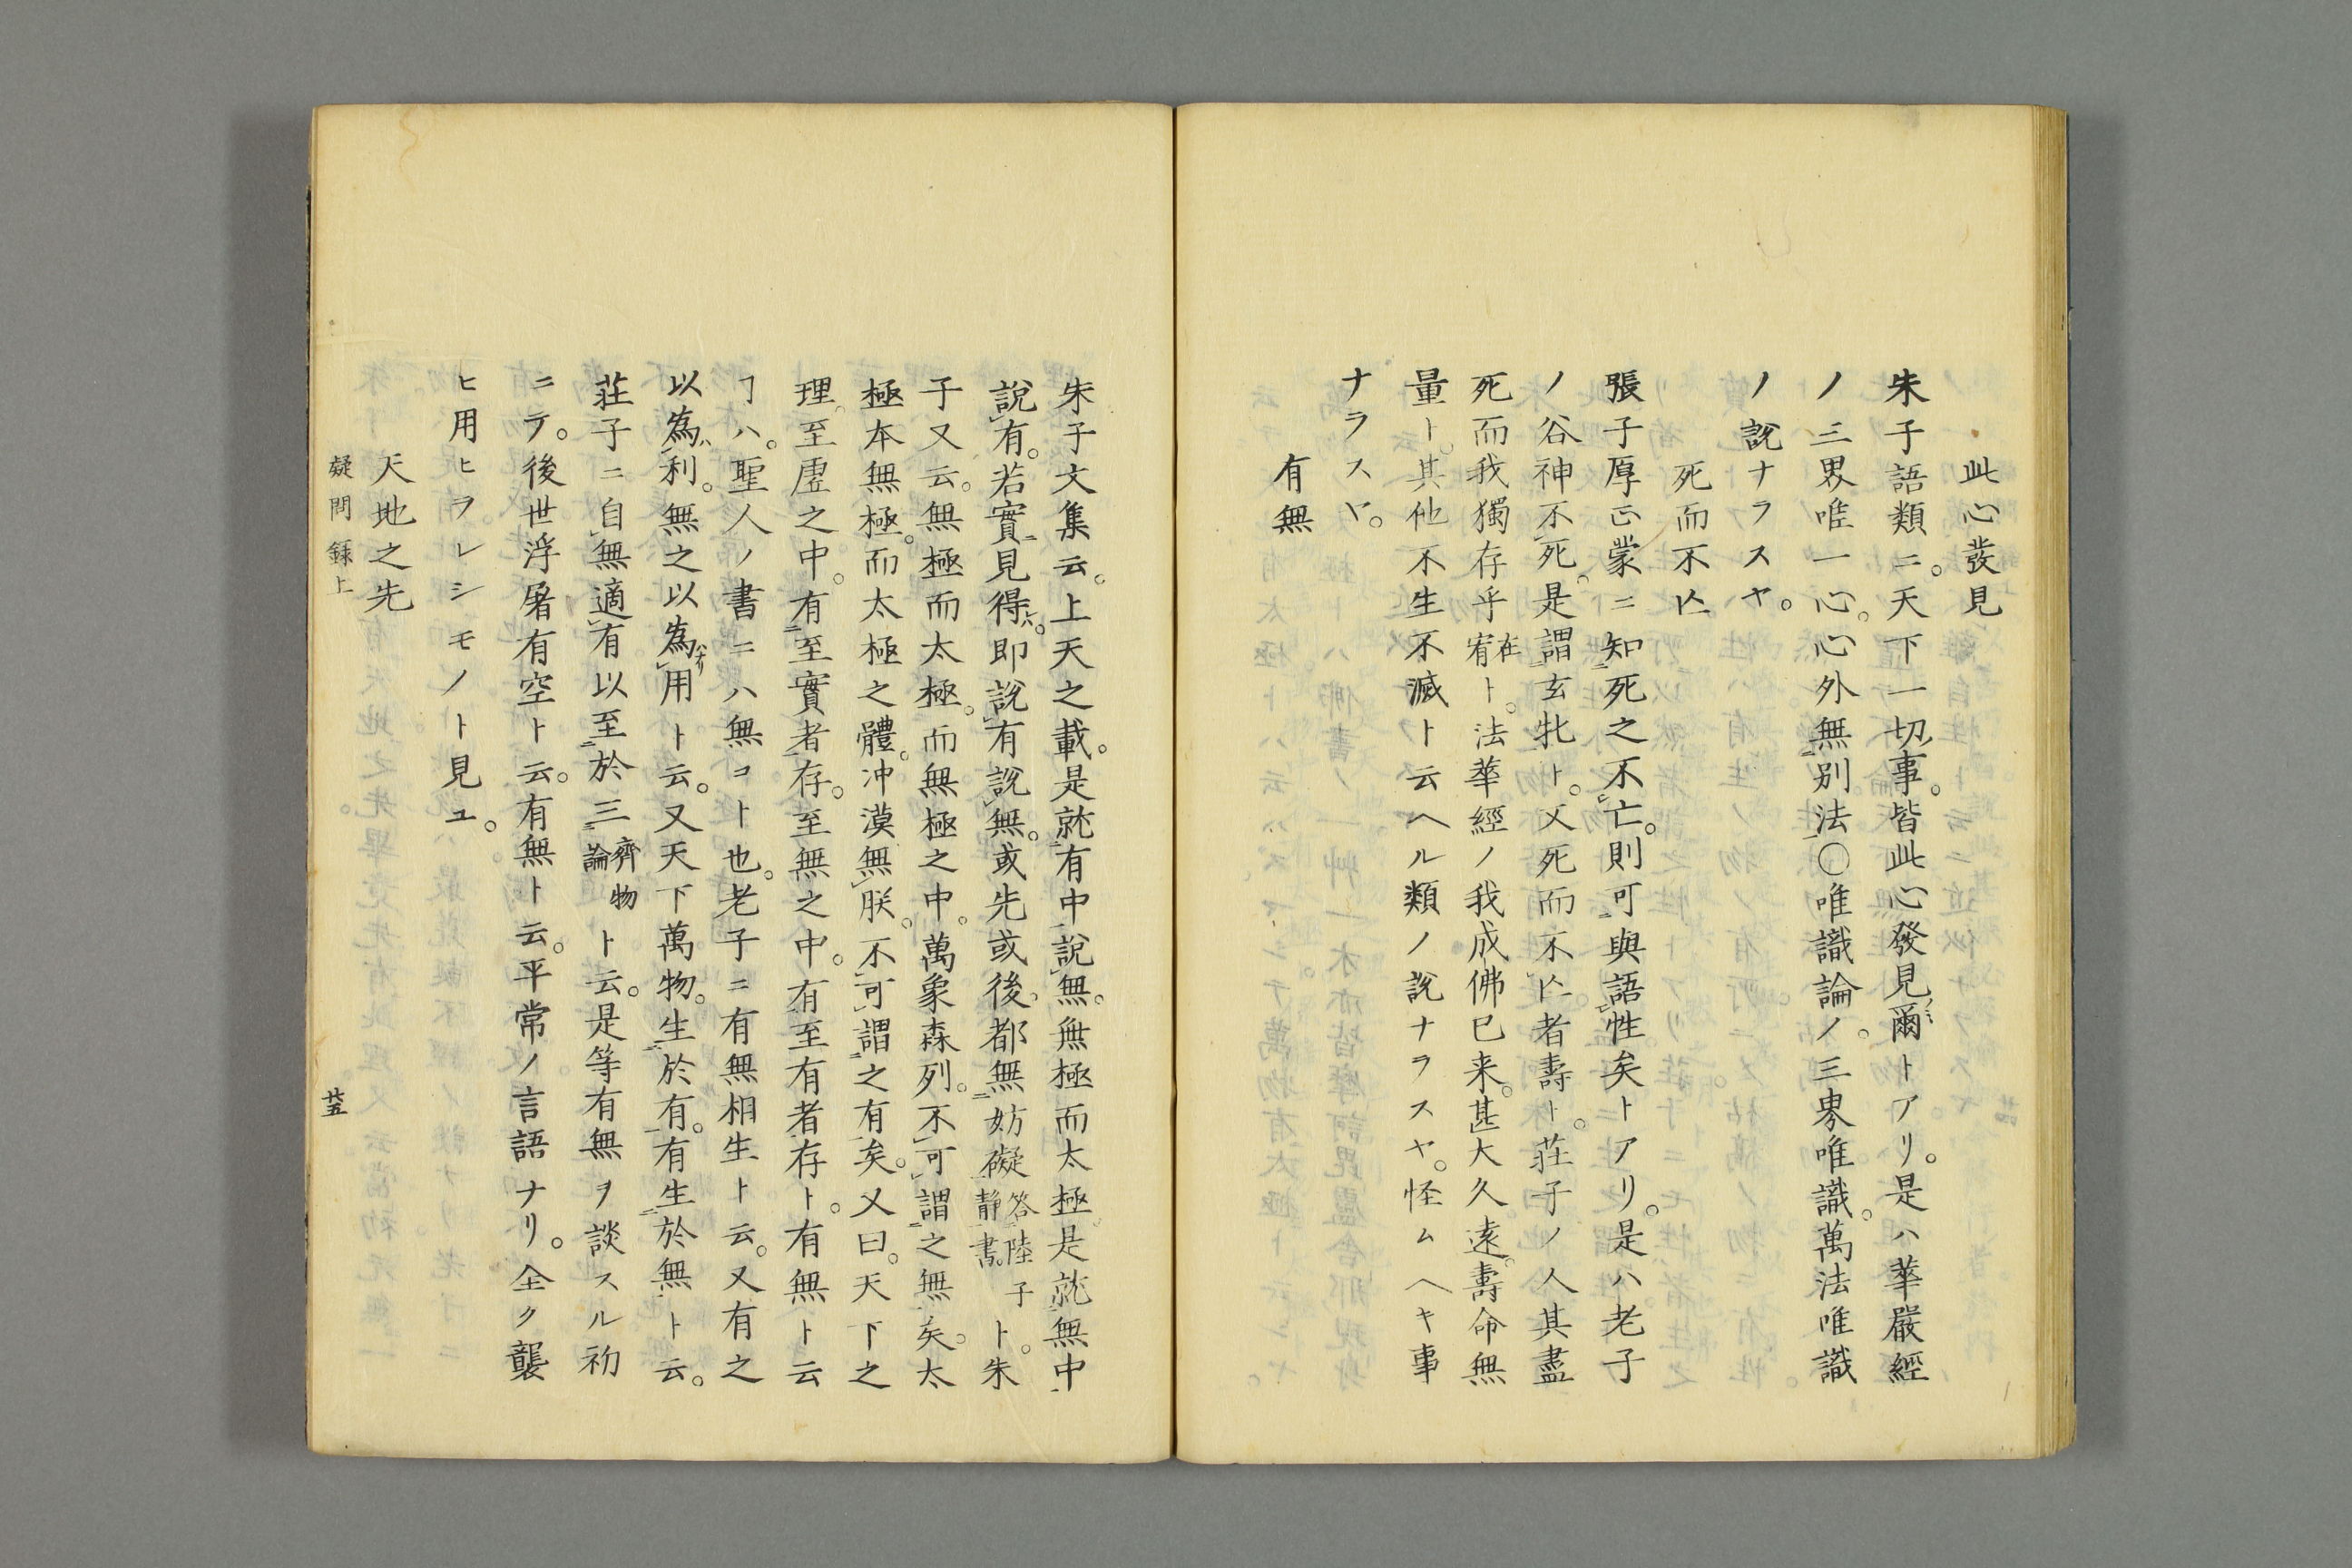 此心發見
朱子語類ニ。天下一切事。皆此心發見爾トアリ。是ハ華嚴經
ノ三界唯一心。心外無別法〇唯識論ノ。三界唯識。萬法唯識
ノ說ナラスヤ。
死而不亾
張子厚正蒙ニ知死之不亡。則可與語性矣トアリ。是ハ老子
ノ谷神不死。是謂玄牝ト。又死而不亾者壽ト。莊子ノ人其盡
死而我獨存乎在宥ト。法華經ノ我成佛已来。甚大久遠。壽命無
量ト。其他不生不滅ト云ヘル類ノ說ナラスヤ。怪ムヘキ事
ナラスヤ。
有無
朱子文集云。上天之載。是就有中說無。無極而太極是就無中
說有。若實見得。即說有說無。或先或後。都無妨礙答陸子静書。ト。朱
子又云。無極而太極。而無極之中。萬象森列。不可謂之無矣。太
極本無極。而太極之體。冲漠無朕。不可謂之有矣。又曰。天下之
理。至虛之中。有至實者存。至無之中。有至有者存ト。有無ト云
ヿハ。聖人ノ書ニハ無コト也。老子ニ有無相生ト云。又有之
以為利。無之以為用ト云。又天下萬物。生於有。有生於無ト云。
莊子ニ自無適有以至於三齊物論ト云。是等有無ヲ談スル初
ニテ。後世浮屠有空ト云。有無ト云。平常ノ言語ナリ。全ク襲
ヒ用ヒヲレシモノト見ユ。
天地之先
疑問録上
廿五